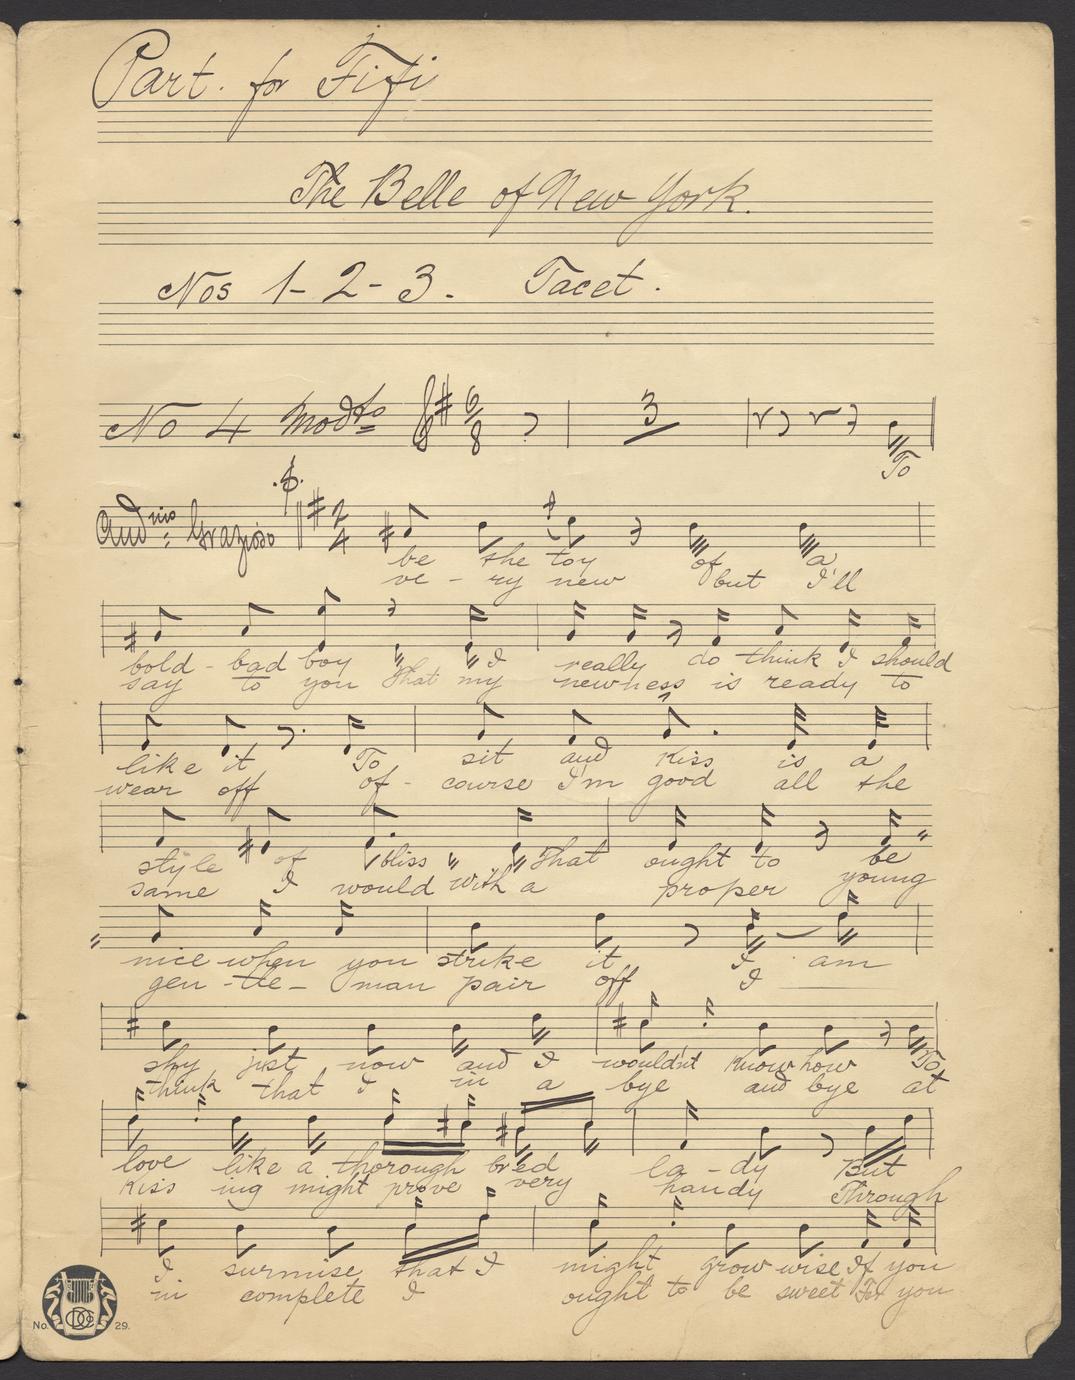 Part. for Fifi
The Belle of New York.
Nos 1-2-3. Tacet.
No 4 Modto 6/8 3
To
Andno Grazioso 2/4
be the toy of a
ve - ry new but I'll
bold - bad boy I really do think I should
say to you That my newness is ready to
like it To sit and kiss is a
wear off of - course I'm good all the
style of bliss " " That ought to be
same I would with a proper young
nice when you strike it I am
gen - tle - man pair off I
shy just now and I wouldn't know how To
think that I in a bye and bye at
love like a thorough bred la - dy But
kiss ing might prove very handy Through
I surmise that I might grow wise If you
in complete I ought to be sweet For you
No. 29.